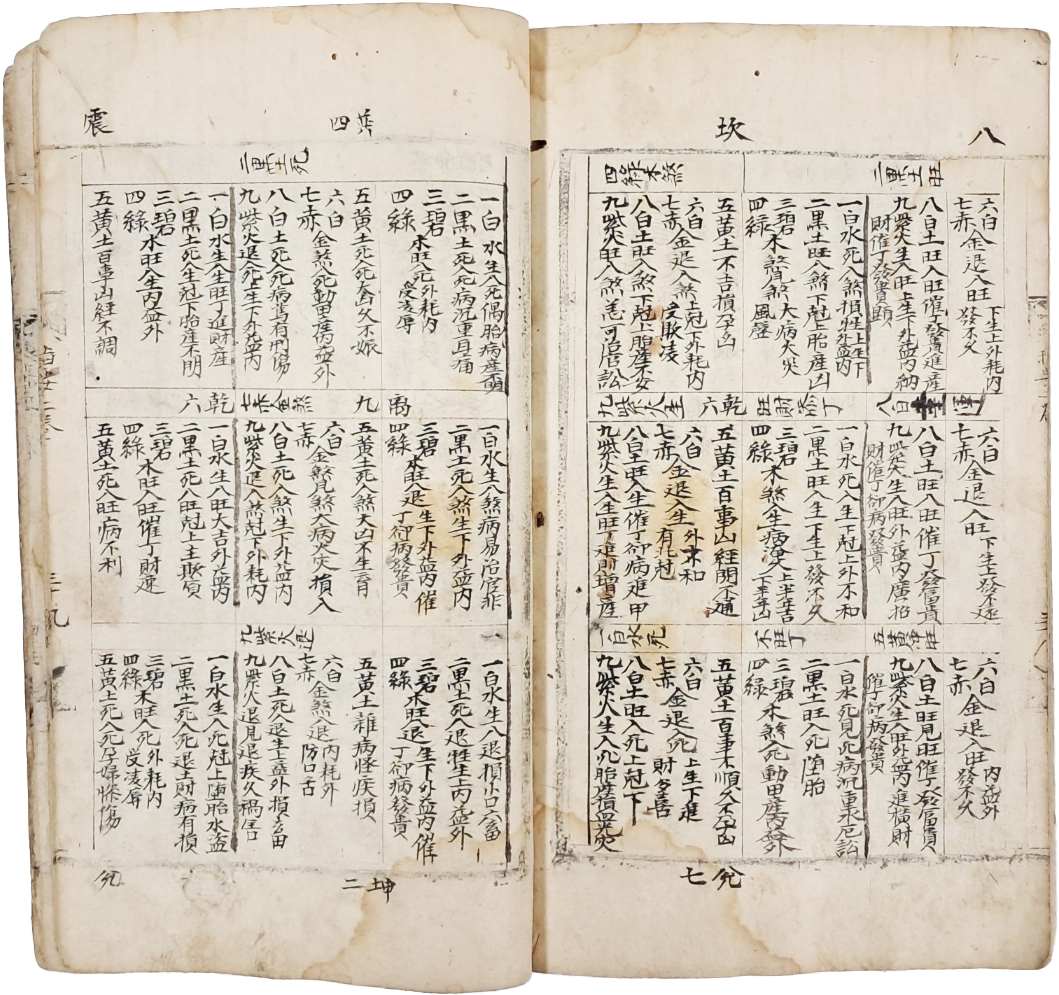 八
坎
二黑土旺
六白
七赤
金退入旺
下生上外耗内
發不久
八白土旺入旺催丁發富進産
九紫火生入旺上生下外益内納
財催丁發貴顯
一白水死入煞損牲上生下
外益内
二黑土旺入煞下尅上胎産凶
三碧
四綠
木煞
大病火災
風聲
四綠木煞
五黃土不吉損孕凶
六白
七赤
金退入煞
上尅下外耗内
受欺凌
八白土旺入煞下尅上胎産不安
九紫火旺入煞
官訟
八白
運
六白
七赤
金退入旺
下生上發不遠
八白土旺入旺催丁發富貴
九紫火生入旺外益内廣招
財催丁卻病發貴
旺財添丁
一白水死入生下尅上外不和
二黑土旺入生下生上發不久
三碧
四綠
木煞入生病災
上半吉
下半凶
乾六
九紫火生
五黃土百事凶經閉不通
六白
七赤
金退入生
外不和
有尅
八白土旺入生催丁卻病進甲
九紫火生入生旺丁進財增産
五黃
旺
六白
七赤
金退入旺
内益外
發不久
八白土旺見旺催丁發富貴
九紫火生入旺外益内進橫財
催丁卻病發貴
不旺丁
一白水死見死病沉重永厄訟
二黑土旺入死墮胎
三碧
四綠
木煞入死動田産
一白水死
五黃土百事不順久不孕凶
六白
七赤
金退入死
上生下進
財多善
八白土旺入死上尅下
九紫火生入死胎産損血光災
兌七
巽四
震
二黑土死
一白水生入死偶胎病産
二黑土死入死病沉重耳痛
三碧
四綠
木旺入死外耗内
受凌辱
五黃土死入死奇久不娠
六白
七赤
金煞入死動田産
益外
八白土死入死病舊有刑傷
九紫火退入死生下外益内
一白水生入生旺丁進財産
二黑土死入生尅下胎産不明
三碧
四綠
木旺入生内益外
五黃土百事凶經不調
離九
七赤金煞
乾六
一白水生入煞病易治官非
二黑土死入煞生下外益内
三碧
四綠
木旺入退
生下外益内催
丁卻病發貴
五黃土死入煞大凶不生育
六白
七赤
金煞見煞大病火災損人
八白土死入煞生下外益内
九紫火退入煞尅下外耗内
一白水生入旺大吉外益内
二黑土死入旺尅上主欺負
三碧
四綠
木旺入旺催丁財運
五黃土死入旺病不利
九紫火退
一白水生入退損小口六畜
二黑土死入退牲生上内益外
三碧
四綠
木旺入退
生下外益内催
丁卻病發貴
五黃土雜病怪疾損
六白
七赤
金煞入退
内耗外
防口舌
八白土死入退生上益外損
九紫火退見退疾久禍官口
一白水生入死尅上墮胎水益
二黑土死入死退土財病有損
三碧
四綠
木旺入死
外耗内
受凌辱
五黃土死入死孕婦慘傷
坤二
兌